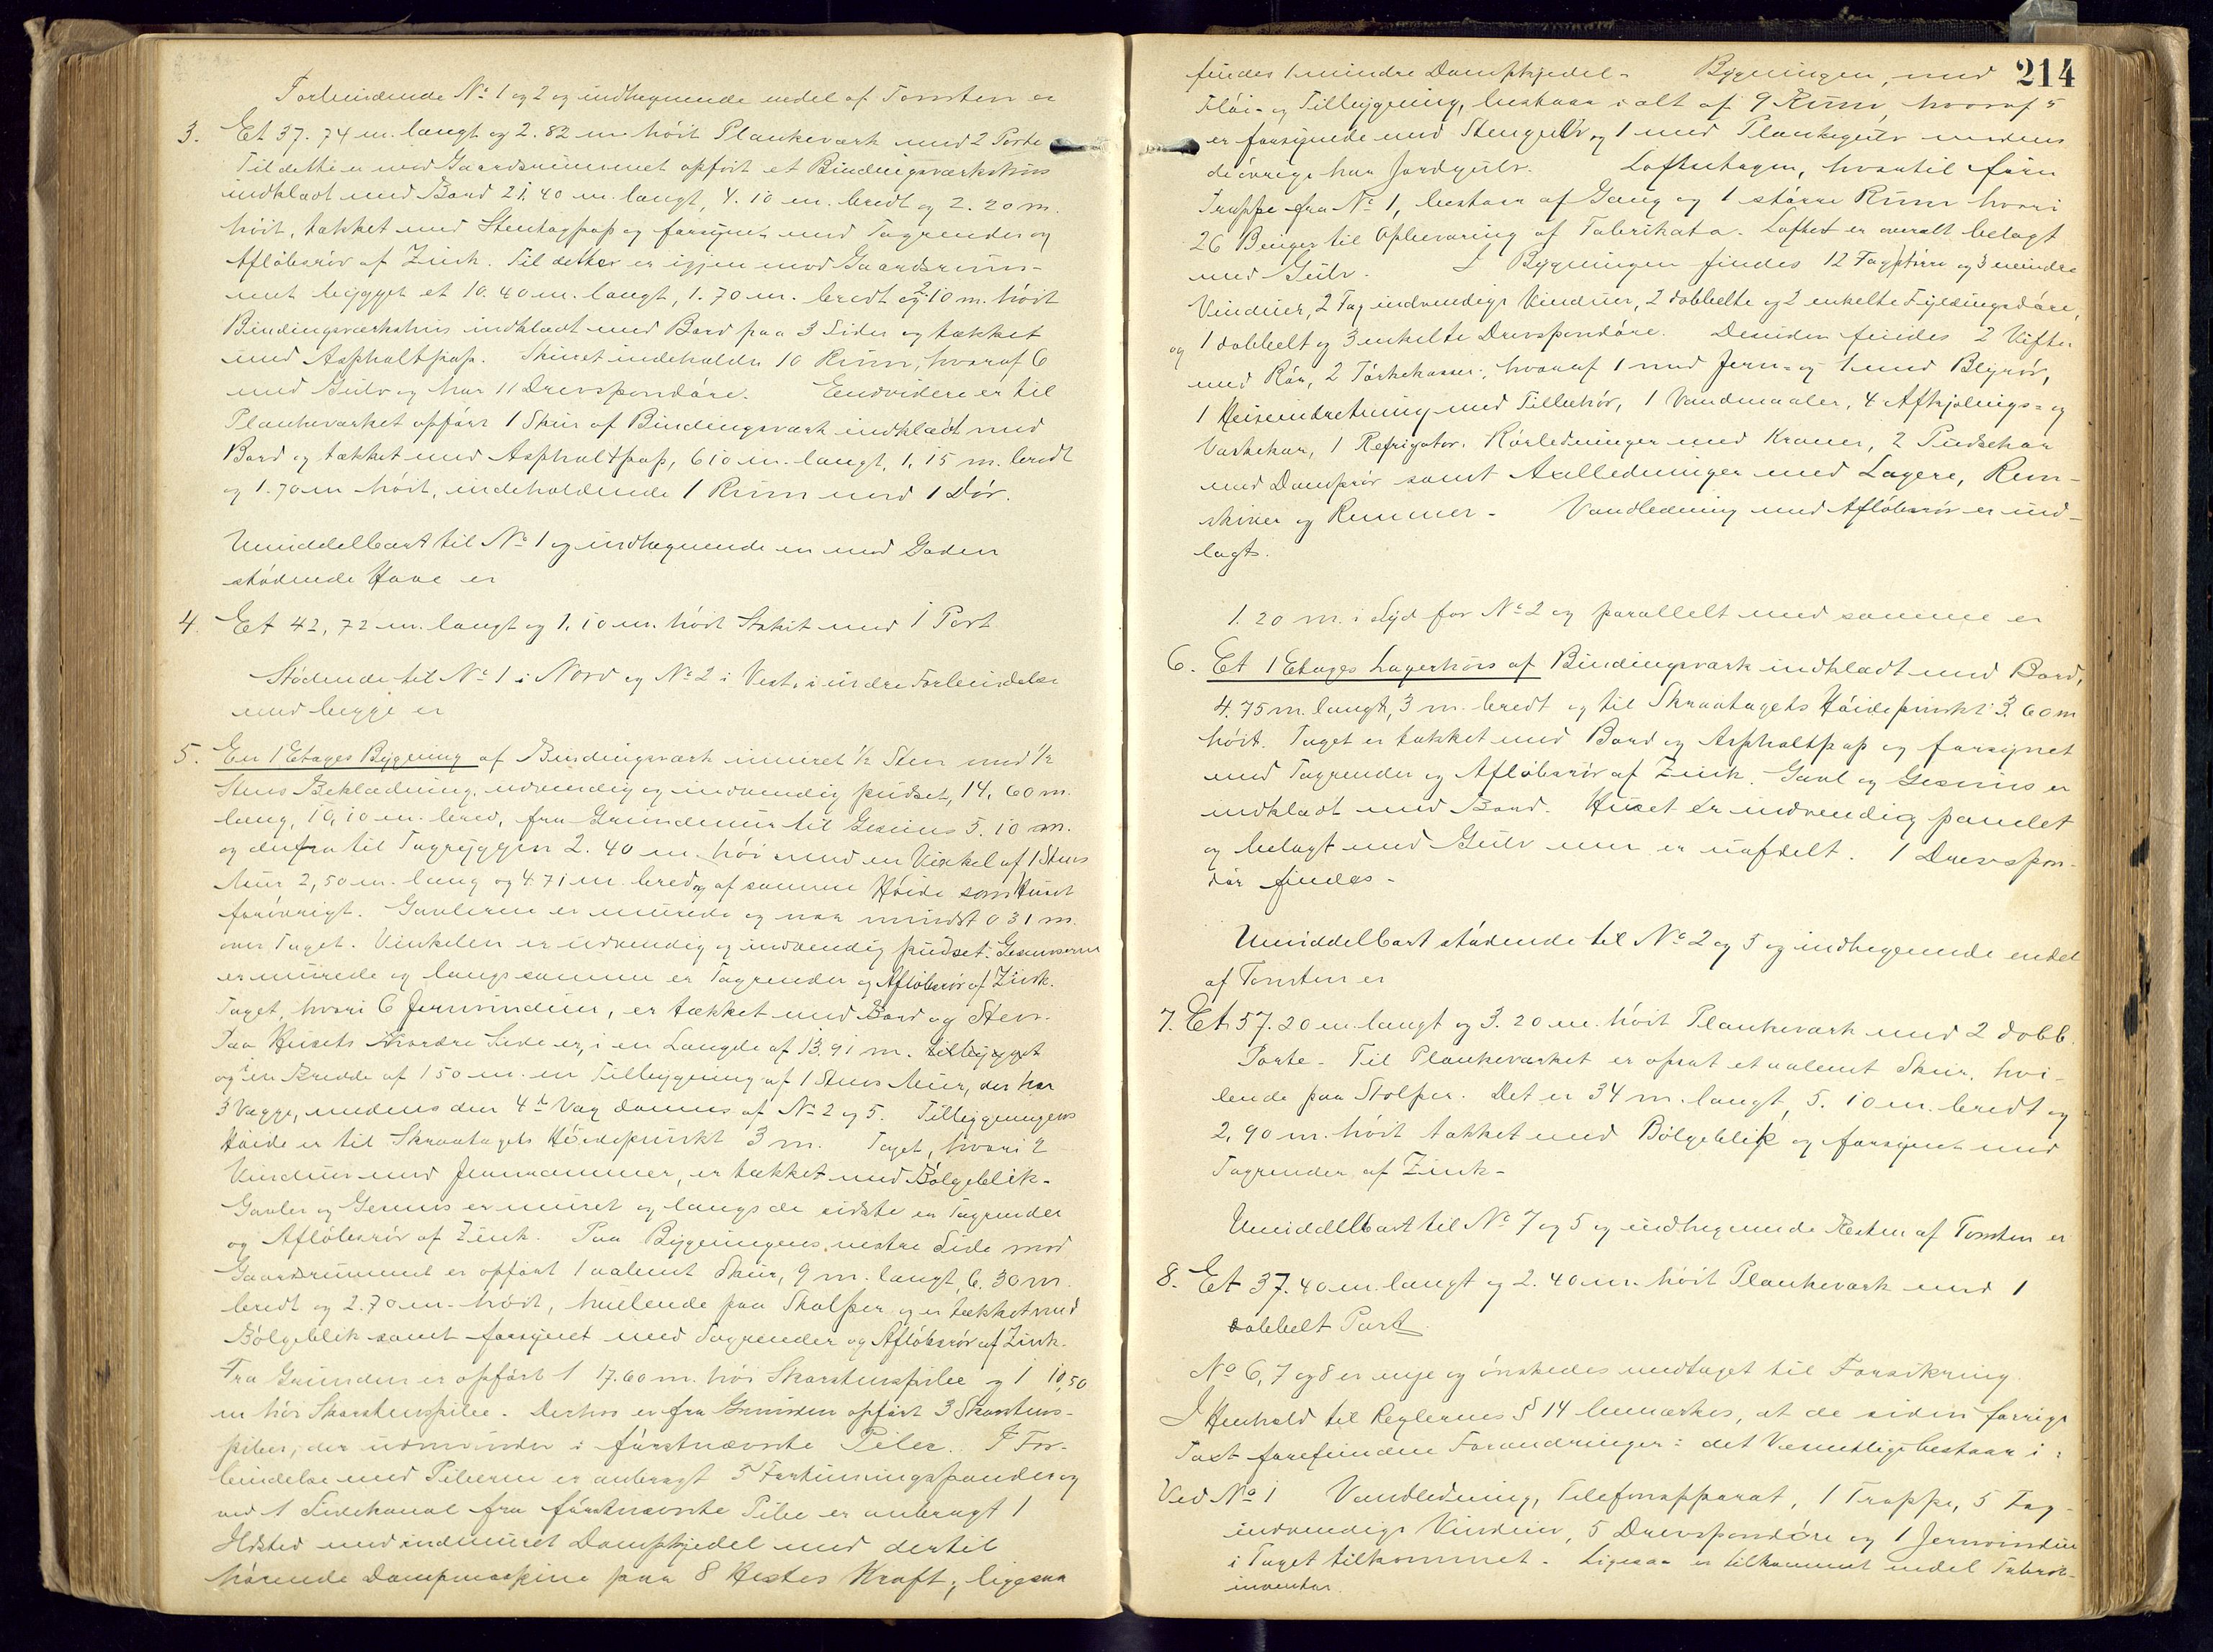 Forbindende No 1 og 2 og indhegnende endel af Tomten er
3. Et 37.74 m. langt og 2.82 m. høit Plankeværk med 2 Porte
Til dette er mod Gaardsrummet opført et Bindingsværksskur
indklædt med Bord 21,40 m. langt, 4.10 m. bredt og 2.20 m.
høit, tækket med Stentagpap og forsynet med Tagrender og
Afløbsrør af Zink. Til dette er igjen mod Gaardsrum-
met bygget et 10.40 m. langt, 1.70 m. bredt og 2.10 m. høit
Bindingsværkshus indklædt med Bord paa 3 Sider og tækket
med Asphaltpap. Skuret indeholder 10 Rum, hvoraf 6
med Gulv og har 11 Drevspondøre. Endvidere er til
Plankeværket opført 1 Skur af Bindingsværk indklædt med
Bord og tækket med Asphaltpap, 610 m. langt, 1,15 m. bredt
og 1.70 m høit, indeholdende 1 Rum med 1 Dør.
Umiddelbart til No 1 og indhegnende en mod Gaden
stødende Have er
4. Et 42,72 m. langt og 1,10 m. høit Stakit med 1 Port
Stødende til No 1 i Nord og No 2 i Vest, i indre Forbindelse
med begge er
5. En 1 Etages Bygning af Bindingsværk inmuret 1/2 Sten med 1/2
Stens Beklædning, udvendig og indvendig pudset, 14,60 m.
lang, 10,10 m. bred, fra Grundmur til Gesims 5.10 m.
og derfra til Tagryggen 2.40 m. høi med en Vinkel af 1 Stens
Mur 2,50 m. lang og 4.71 m. bred og af samme Høide som Huset
forøvrigt. Gavlerne er murede og naa mindst 0 31 m.
over Taget. Vinkelen er udvendig og indvendig pudset. Gesimserne
er murede og langs samme er Tagrender og Afløbsrør af Zink.
Taget, hvori 6 Jernvinduer, er tækket med Bord og Sten.
Paa Husets Nordre Side er, i en Længde af 13.91 m. tilbygget
og i en Bredde af 1 50 m. en Tilbygning af 1 Stens Mur, der har
3 Vægge, medens den 4de Væg dannes af No 2 og 5. Tilbygningens
Høide er til Skraatagets Høidepunkt 3 m. Taget, hvori 2
Vinduer med Jernrammer, er tækket med Bølgeblik.
Gavler og Gesims er muret og langs de sidste er Tagrender
og Afløbsrør af Zink. Paa Bygningens vestre Side mod
Gaardsrummet er opført 1 aabent Skur, 9 m. langt, 6,30 m.
bredt og 2.70 m. høit, hvilende paa Stolper og er tækket med
Bølgeblik samt forsynet med Tagrender og Afløbsrør af Zink.
Fra Grunden er opført 1 17.60 m. høi Skorstenspibe og 1 10,50
m høi Skorstenspibe. Derhos er fra Grunden opført 3 Skorstens-
piber, der udmunder i førstnævnte Piber. I For-
bindelse med Piberne er anbragt 5 Fortinningspander og
ved 1 Sidekanal fra førstnævnte Pibe er anbragt 1
Ildsted med indmuret Dampkjedel med dertil
hørende Dampmaskine paa 8 Hestes Kraft; ligesaa
214
findes 1 mindre Dampkjedel. Bygningen, med
Fløi- og Tilbygning, bestaar i alt af 9 Rum, hvoraf 5
er forsynede med Stengulv og 1 med Plankegulv medens
de øvrige har Jordgulv. Loftsetagen, hvortil fører
Trappe fra No 1, bestaar af Gang og 1 større Rum hvori
26 Binger til Opbevaring af Fabrikata. Loftet er overalt belagt
med Gulv. I Bygningen findes 12 Fag større og 3 mindre
Vinduer, 2 Fag indvendige Vinduer, 2 dobbelte og 2 enkelte Fyldingsdøre,
og 1 dobbelt og 3 enkelte Drevspondøre. Desuden findes 2 Vifter
med Rør, 2 Tørkekasser, hvoraf 1 med Jern- og 1 med Blyrør,
1 Heiseindretning med Tilbehør, 1 Vandmaaler, 4 Afkjølings- og
Vaskekar, 1 Refrigator. Rørledninger med Kraner, 2 Pudsekar
med Damprør samt Axelledninger med Lagere, Rem-
skiver og Remmer. Vandledning med Afløbsrør er ind-
lagt.
1.20 m. i Syd for No 2 og parallelt med samme er
6. Et 1 Etages Lagerhus af Bindingsværk indklædt med Bord,
4.75 m. langt, 3 m. bredt og til Skraatagets Høidepunkt 3.60 m
høit. Taget er tækket med Bord og Asphaltpap og forsynet
med Tagrender og Afløbsrør af Zink. Gavl og Gesims er
indklædt med Bord. Huset er indvendig panelet
og belagt med Gulv men er uafdelt. 1 Drevspon-
dør findes.
Umiddelbart stødende til No 2 og 5 og indhegnende endel
af Tomten er
7. Et 57.20 m. langt og 3.20 m. høit Plankeværk med 2 dobb.
Porte. Til Plankeværket er opsat et aabent Skur, hvi-
lende paa Stolper. Det er 34 m. langt, 5.10 m. bredt og
2,90 m. høit tækket med Bølgeblik og forsynet med
Tagrender af Zink.
Umiddelbart til No 7 og 5 og indhegnende Resten af Tomten er
8. Et 37.40 m. langt og 2.40 m. høit Plankeværk med 1
dobbelt Port
No 6, 7 og 8 er nye og ønskedes medtaget til Forsikring.
I Henhold til Reglernes § 14 bemærkes, at de siden forrige
Taxt forefundne Forandringer i det Væsentlige bestaar i:
Ved No 1 Vandledning, Telefonapparat, 1 Trappe, 5 Fag
indvendige Vinduer, 5 Drevspondøre og 1 Jernvindue
i Taget tilkommet. Ligesaa er tilkommet endel Fabrik-
inventar.